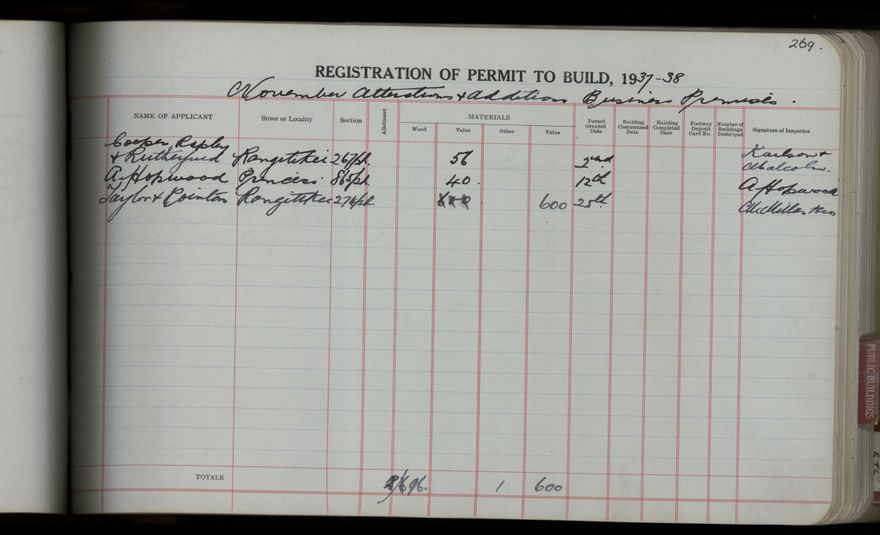 269.
REGISTRATION OF PERMIT TO BUILD, 1937-38
November Alterations & additions Business Premises.
NAME OF APPLICANT Street or Locality Section Allotment MATERIALS Permit Granted Date Building Commenced Date Building Completed Date Footway Deposit Card No. Number of Buildings Destroyed Signature of Inspector
Wood Value Other Value
Cooper Rapley
& Rutherfurd Rangitikei 267/pt. 56 2nd Karlson &
Malcolm.
A. Hopwood Princess 865/pt. 40. 12th A. Hopwood
Taylor & Pointon Rangitikei 600 25th McMillan Bros
TOTALS 1 600
PUBLIC BUILDINGS